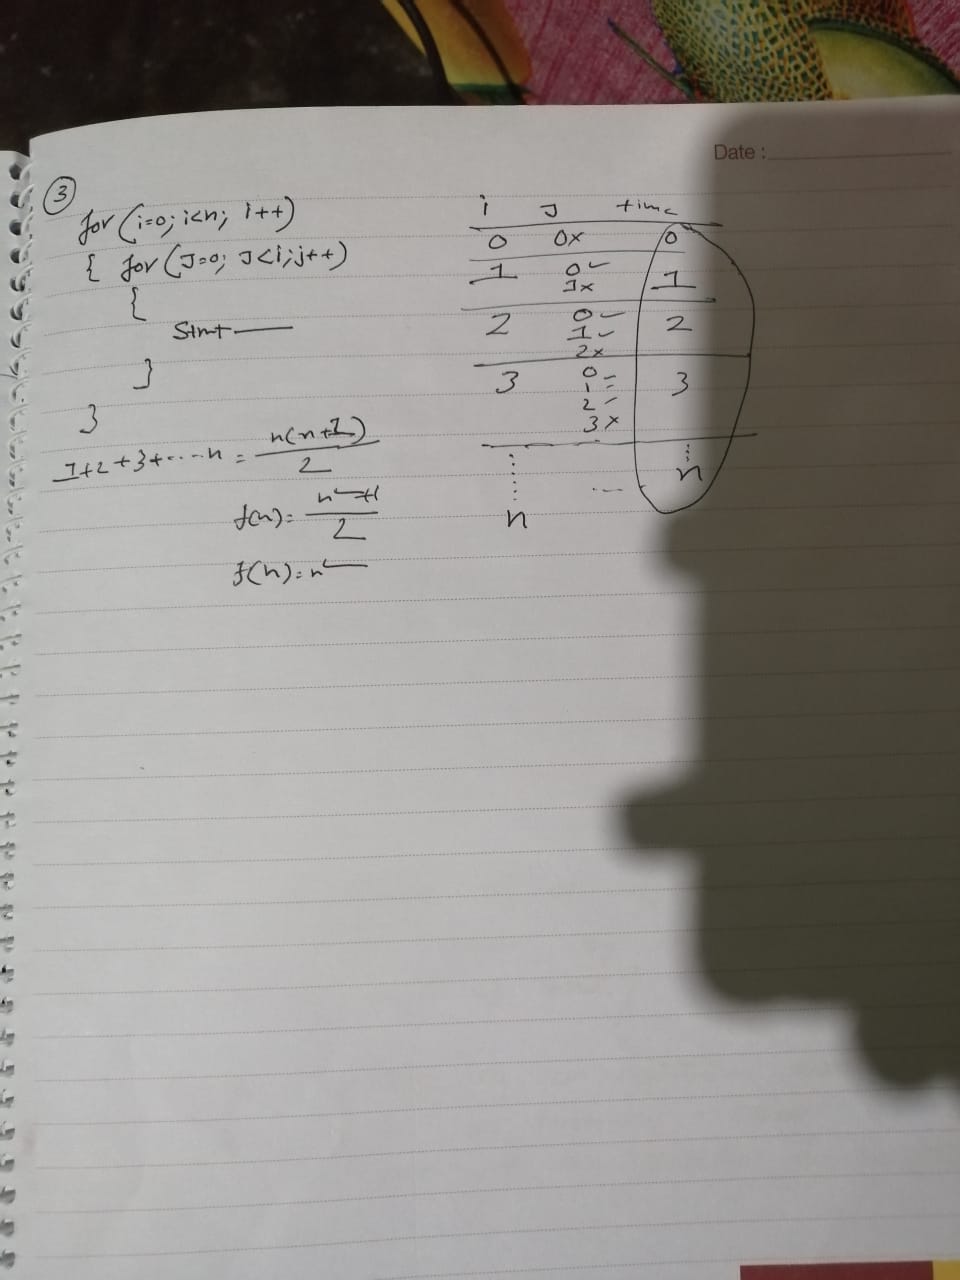 Date :
3
for (i=0; i<n; i++)
{ for (J=0; J<i; j++)
{
Stmt
}
}
1+2+3+....n = n(n+1)/2
f(n) = n²+1/2
f(n) = n²
i J time
0 0x 0
1 0✓ 1
1x
2 0✓ 2
1✓
2x
3 0 3
1
2
3x
n ... n